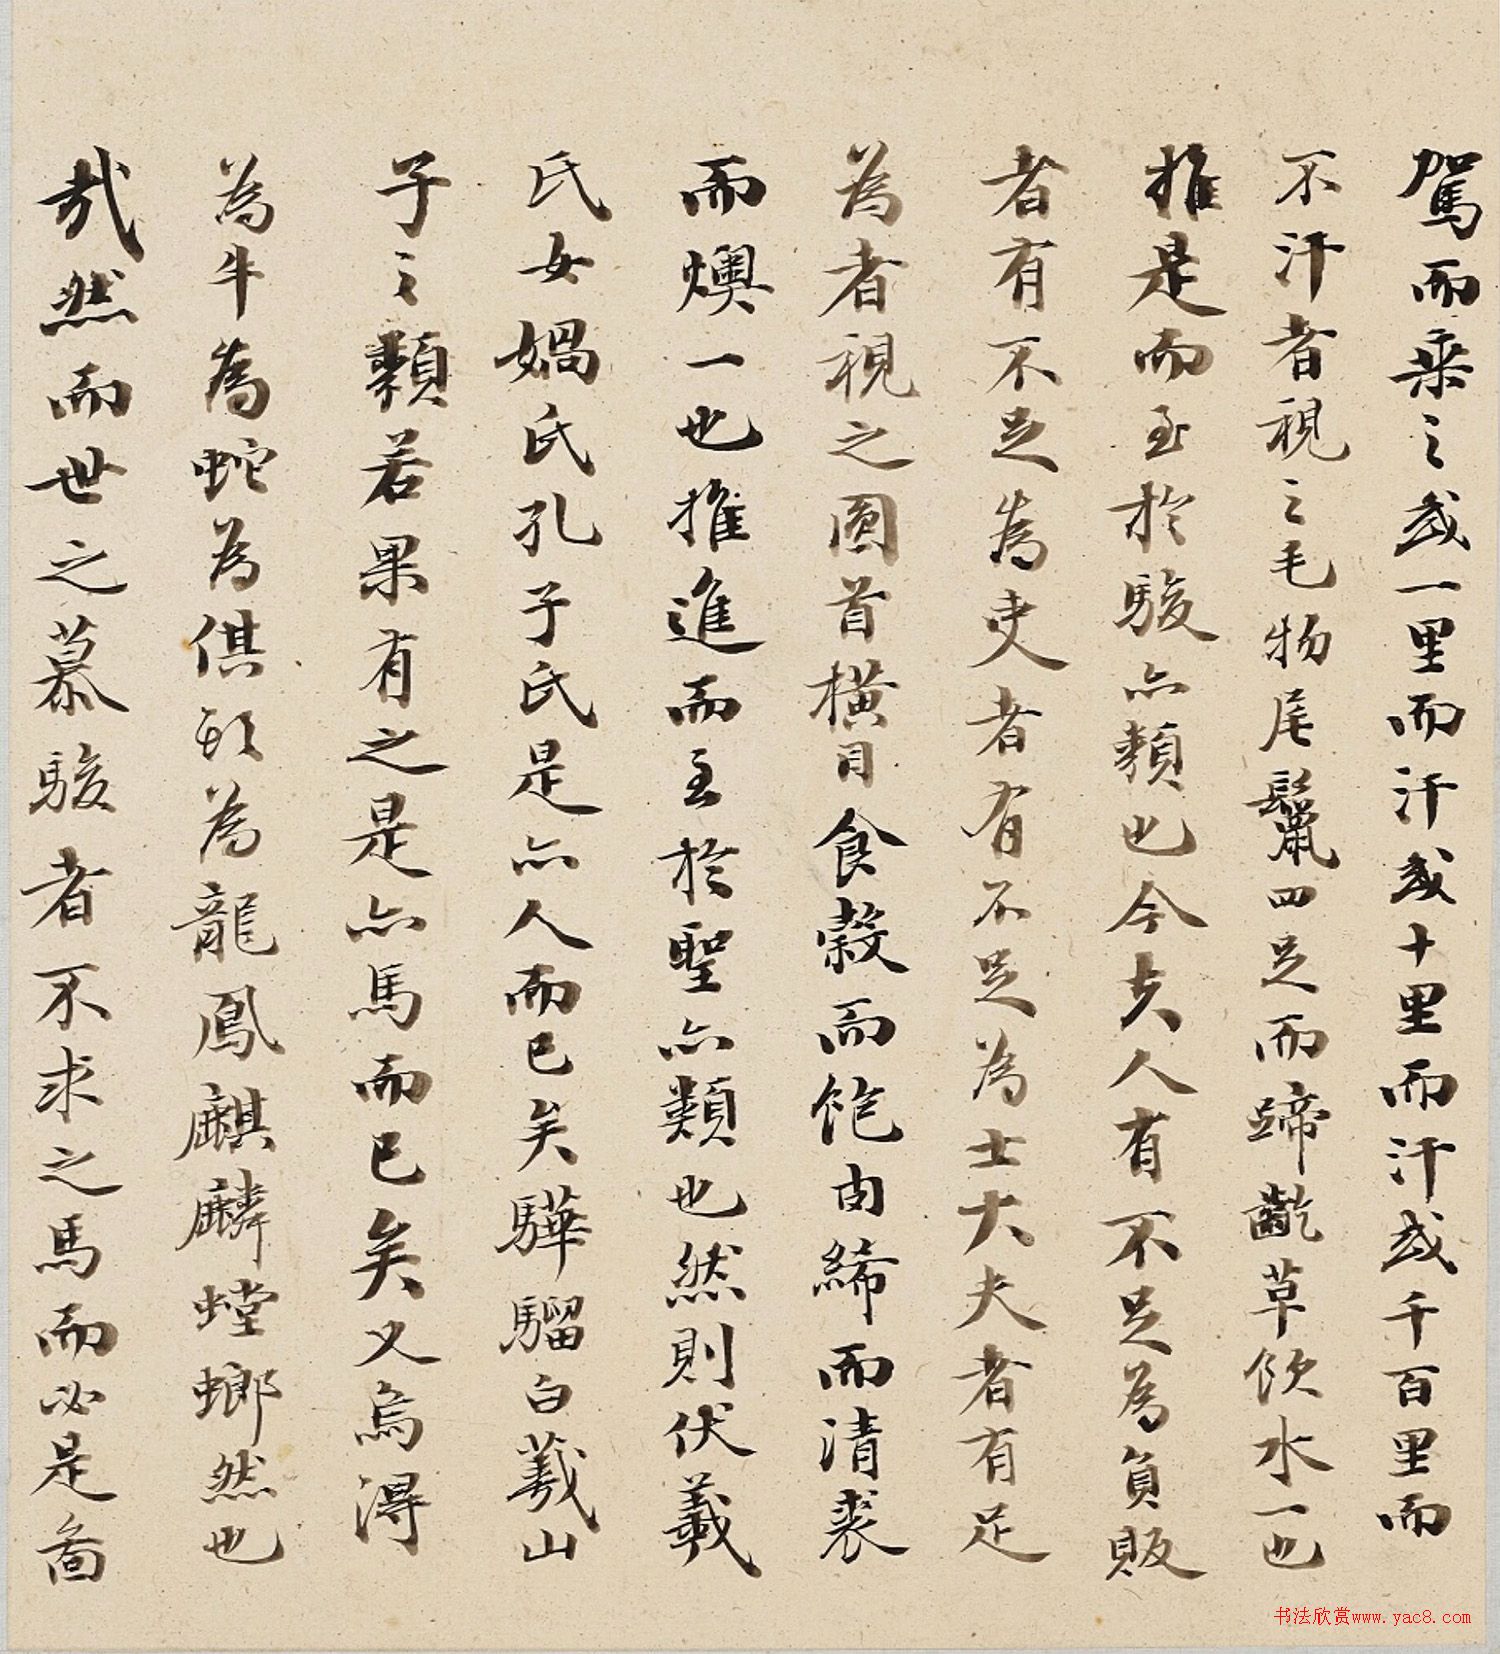 駕而乘之或一里而汗或十里而汗或千百里而
不汗者視之毛物尾鬣四足而蹄齕草飲水一也
推是而至於駿亦類也今夫人有不足為負販
者有不足為吏者有不足為士大夫者有足
為者視之圓首橫目食穀而飽肉絺而清裘
而燠一也推進而至於聖亦類也然則伏羲
氏女媧氏孔子氏是亦人而已矣驊騮白羲山
子之類若果有之是亦馬而已矣又烏得
為牛為蛇為倛頭為龍鳳麒麟螳螂然也
哉然而世之慕駿者不求之馬而必是啚
书法欣赏www.yac8.com